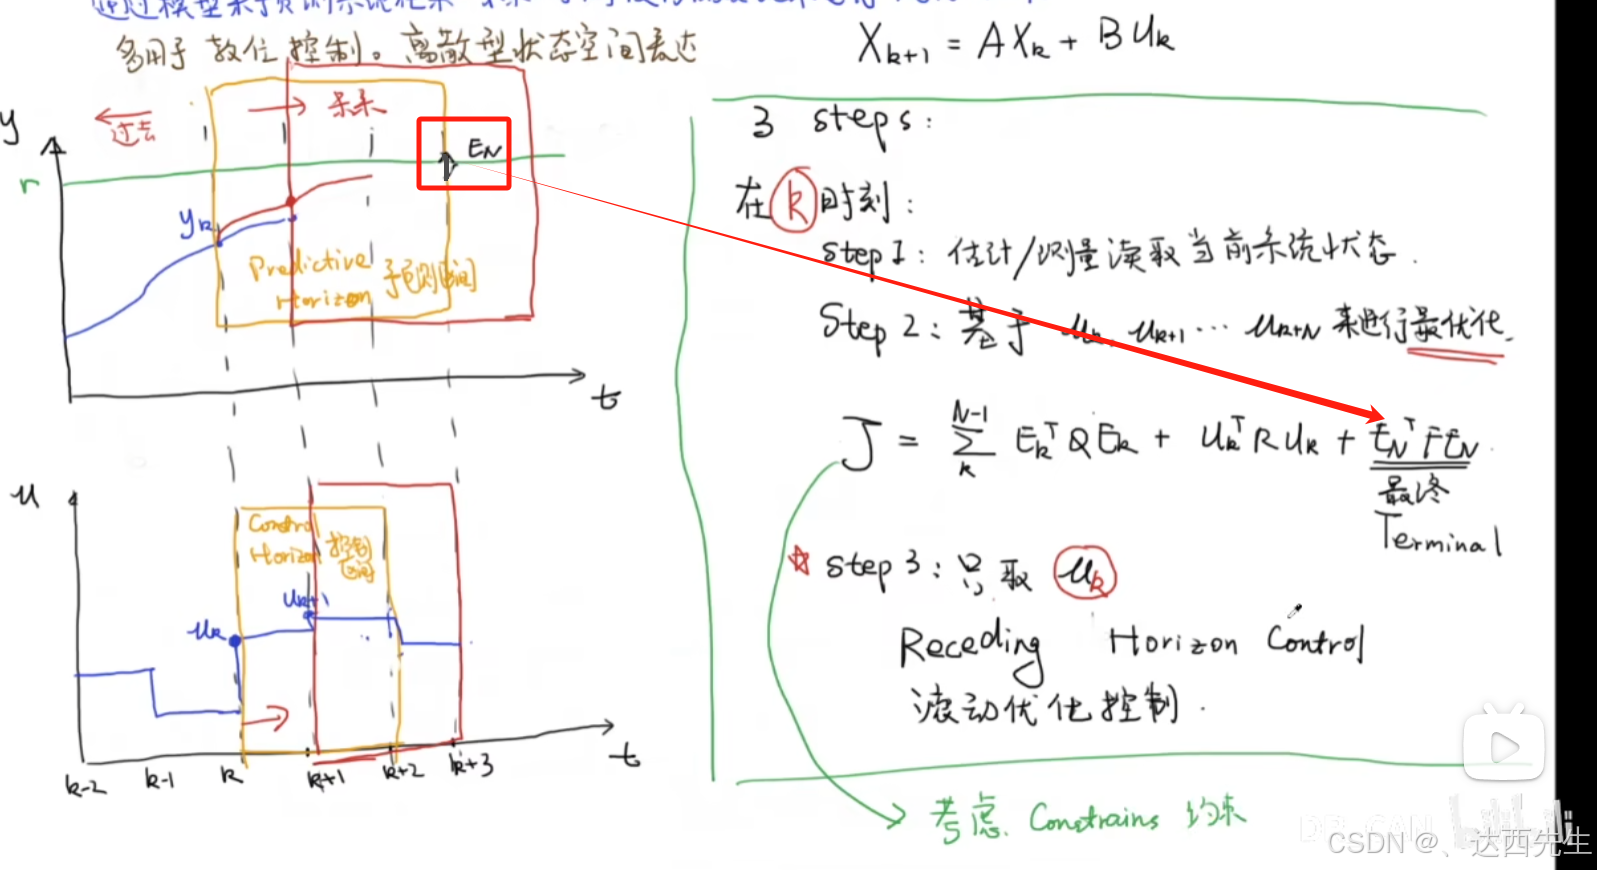 通过模型来预测系统在某
多用于 数位 控制。离散型状态空间表达
X_{k+1} = AX_k + BU_k
y
过去
未来
E_N
r
y_k
Predictive Horizon 预测区间
t
3 steps:
在 k 时刻:
step1: 估计/测量读取当前系统状态.
Step 2: 基于 u_k, u_{k+1} ... u_{k+N} 来进行最优化.
J = \sum_k^{N-1} E_k^T Q E_k + U_k^T R U_k + E_N^T F E_N
最终
Terminal
☆ step3: 只取 u_k
Receding Horizon Control
滚动优化控制.
考虑 Constrains 约束
u
Control Horizon 控制区间
u_k
u_{k+1}
k-2 k-1 k k+1 k+2 k+3
t
DR_CAN
bilibili
CSDN @、达西先生